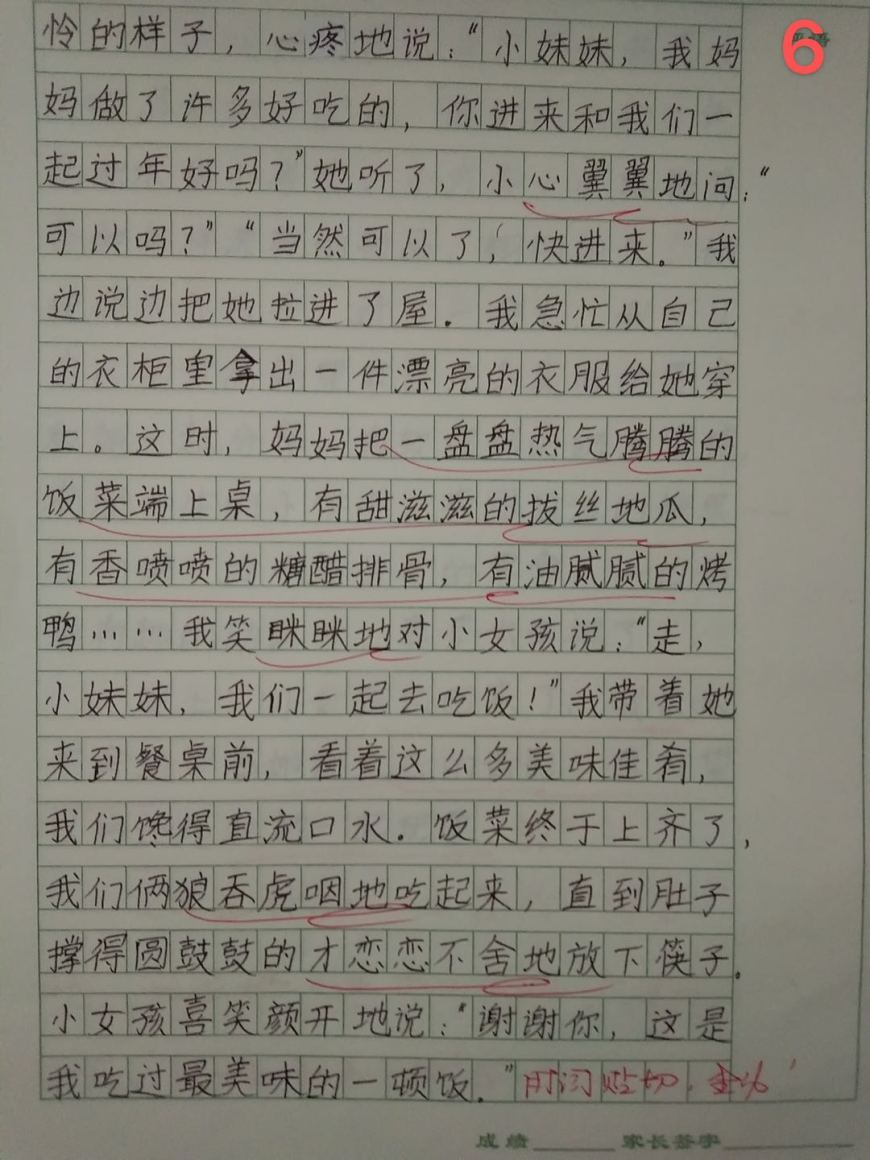 6
怜的样子，心疼地说：“小妹妹，我妈
妈做了许多好吃的，你进来和我们一
起过年好吗？”她听了，小心翼翼地问：“
可以吗？”“当然可以了，快进来。”我
边说边把她拉进了屋。我急忙从自己
的衣柜里拿出一件漂亮的衣服给她穿
上。这时，妈妈把一盘盘热气腾腾的
饭菜端上桌，有甜滋滋的拔丝地瓜，
有香喷喷的糖醋排骨，有油腻腻的烤
鸭……我笑眯眯地对小女孩说：“走，
小妹妹，我们一起去吃饭！”我带着她
来到餐桌前，看着这么多美味佳肴，
我们馋得直流口水。饭菜终于上齐了，
我们俩狼吞虎咽地吃起来，直到肚子
撑得圆鼓鼓的才恋恋不舍地放下筷子。
小女孩喜笑颜开地说：“谢谢你，这是
我吃过最美味的一顿饭。”用词贴切，
成绩 家长签字